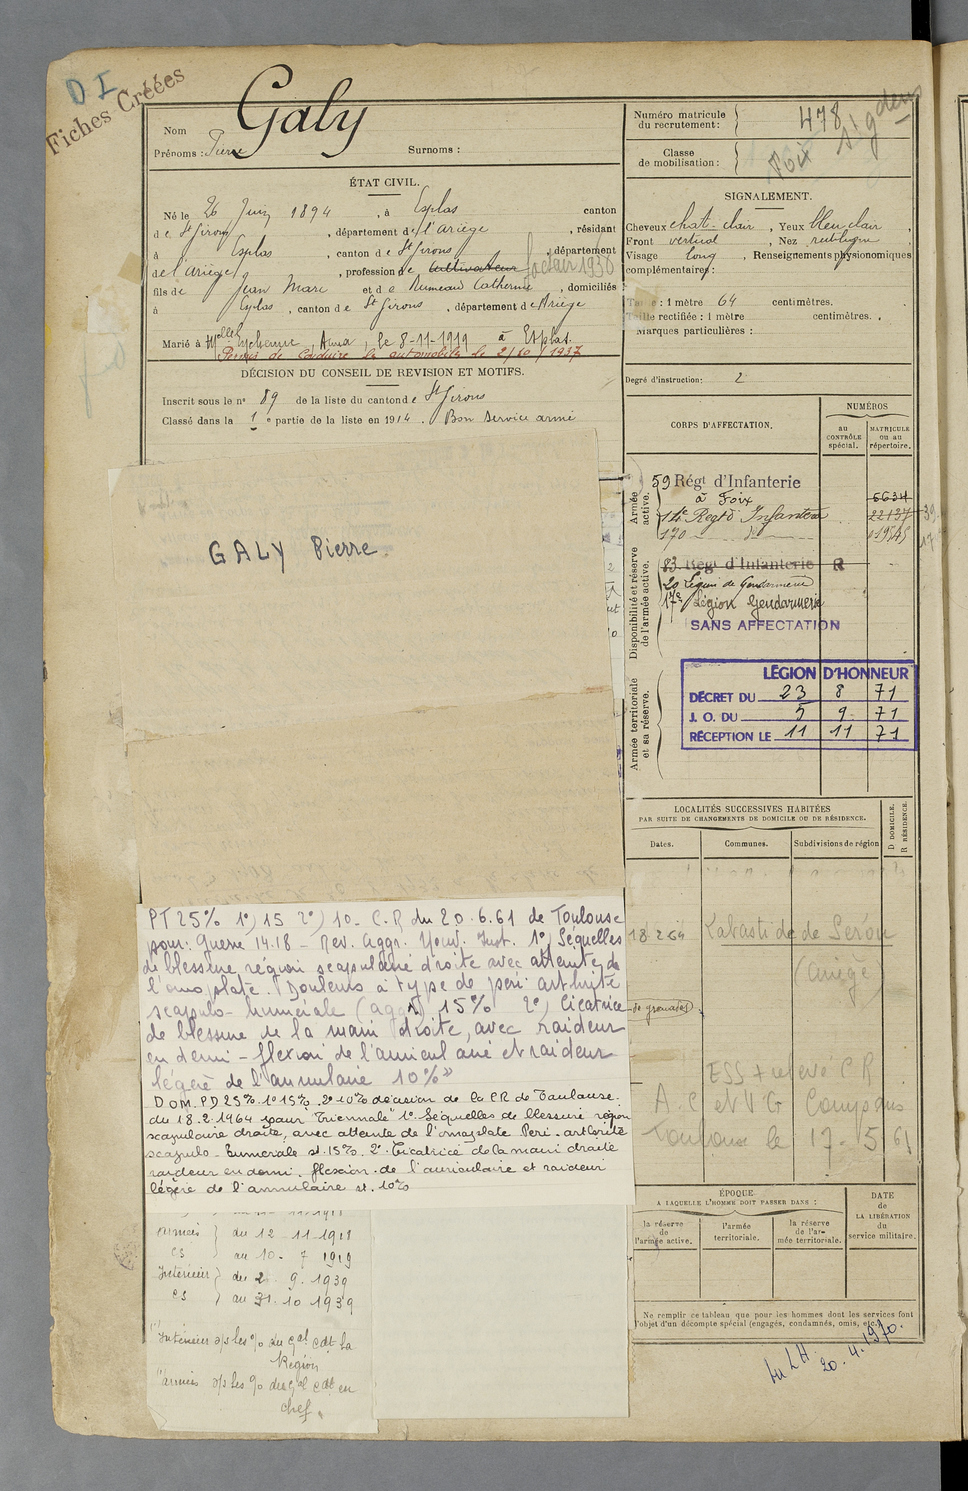 D I
Fiches Créées
Nom Galy
Prénoms : Pierre Surnoms :
Numéro matricule du recrutement : 478
Classe de mobilisation :
Foix
ÉTAT CIVIL.
Né le 26 Juin 1894, à Esplas canton
de St Girons, département de l'Ariège, résidant
à Esplas, canton de St Girons, département
de l'Ariège, profession de cultivateur facteur 1936
fils de Jean Marc et de Rumeau Catherine, domiciliés
à Esplas, canton de St Girons, département de Ariège
Marié à Melle Eychenne, Anna, le 8-11-1919 à Esplas.
Permis de conduire les automobiles le 2/10/1937
DÉCISION DU CONSEIL DE REVISION ET MOTIFS.
Inscrit sous le n° 89 de la liste du canton de St Girons
Classé dans la 1e partie de la liste en 1914. Bon service armé
SIGNALEMENT.
Cheveux chat. clair, Yeux bleu clair,
Front vertical, Nez rectiligne,
Visage long, Renseignements physionomiques
complémentaires :
Taille : 1 mètre 64 centimètres.
Taille rectifiée : 1 mètre centimètres.
Marques particulières :
Degré d'instruction : 2
CORPS D'AFFECTATION.
NUMÉROS
au CONTRÔLE spécial.
MATRICULE ou au répertoire.
Armée active.
59 Régt d'Infanterie
à Foix
6634
14e Regt d'Infanterie 22137
170 - do - 01954S
Disponibilité et réserve de l'armée active.
83 Régt d'Infanterie R
20 Légion de Gendarmerie
17e Légion Gendarmerie
SANS AFFECTATION
Armée territoriale et sa réserve.
LÉGION D'HONNEUR
DÉCRET DU 23 8 71
J. O. DU 5 9 71
RÉCEPTION LE 11 11 71
GALY Pierre
LOCALITÉS SUCCESSIVES HABITÉES
PAR SUITE DE CHANGEMENTS DE DOMICILE OU DE RÉSIDENCE.
Dates.
Communes.
Subdivisions de région
D DOMICILE.
R RÉSIDENCE.
18 2 64 Labastide de Serou
(Ariège)
de grenades)
ESS + relevé CR
A C et V G Comp dus
Toulouse le 17-5 61
PT 25% 1°) 15 2°) 10 - C.R du 20.6.61 de Toulouse
pour: guerre 14.18 - Rev. aggr. Nouv. Inst. 1°) Séquelles
de blessure région scapulaire droite avec atteinte de
l'omoplate. Douleurs à type de péri-arthrite
scapulo-humérale (aggr) 15% 2°) Cicatrice
de blessure de la main droite, avec raideur
en demi-flexion de l'auriculaire et raideur
légère de l'annulaire 10%»
D O M. P D 25%. 1° 15%. 2° 10% décision de la CR de Toulouse.
du 18.2.1964 pour "Triennale" 1° Séquelles de blessure région
scapulaire droite, avec atteinte de l'omoplate Péri-arthrite
scapulo-humérale st. 15%. 2° Cicatrice de la main droite
raideur en demi-flexion de l'auriculaire et raideur
légère de l'annulaire st. 10%
armées } du 12-11-1918
CS } au 10-7 1919
Intérieur } du 2.9.1939
CS } au 31.10 1939
"Intérieur s/s les %o du Gal Cdt la
Région
"armées s/s les %o du Gal Cdt en
chef.
ÉPOQUE
A LAQUELLE L'HOMME DOIT PASSER DANS :
la réserve de l'armée active.
l'armée territoriale.
la réserve de l'armée territoriale.
DATE de LA LIBÉRATION du service militaire.
Ne remplir ce tableau que pour les hommes dont les services font
l'objet d'un décompte spécial (engagés, condamnés, omis, etc.)
Au LH.
20.4.1970.